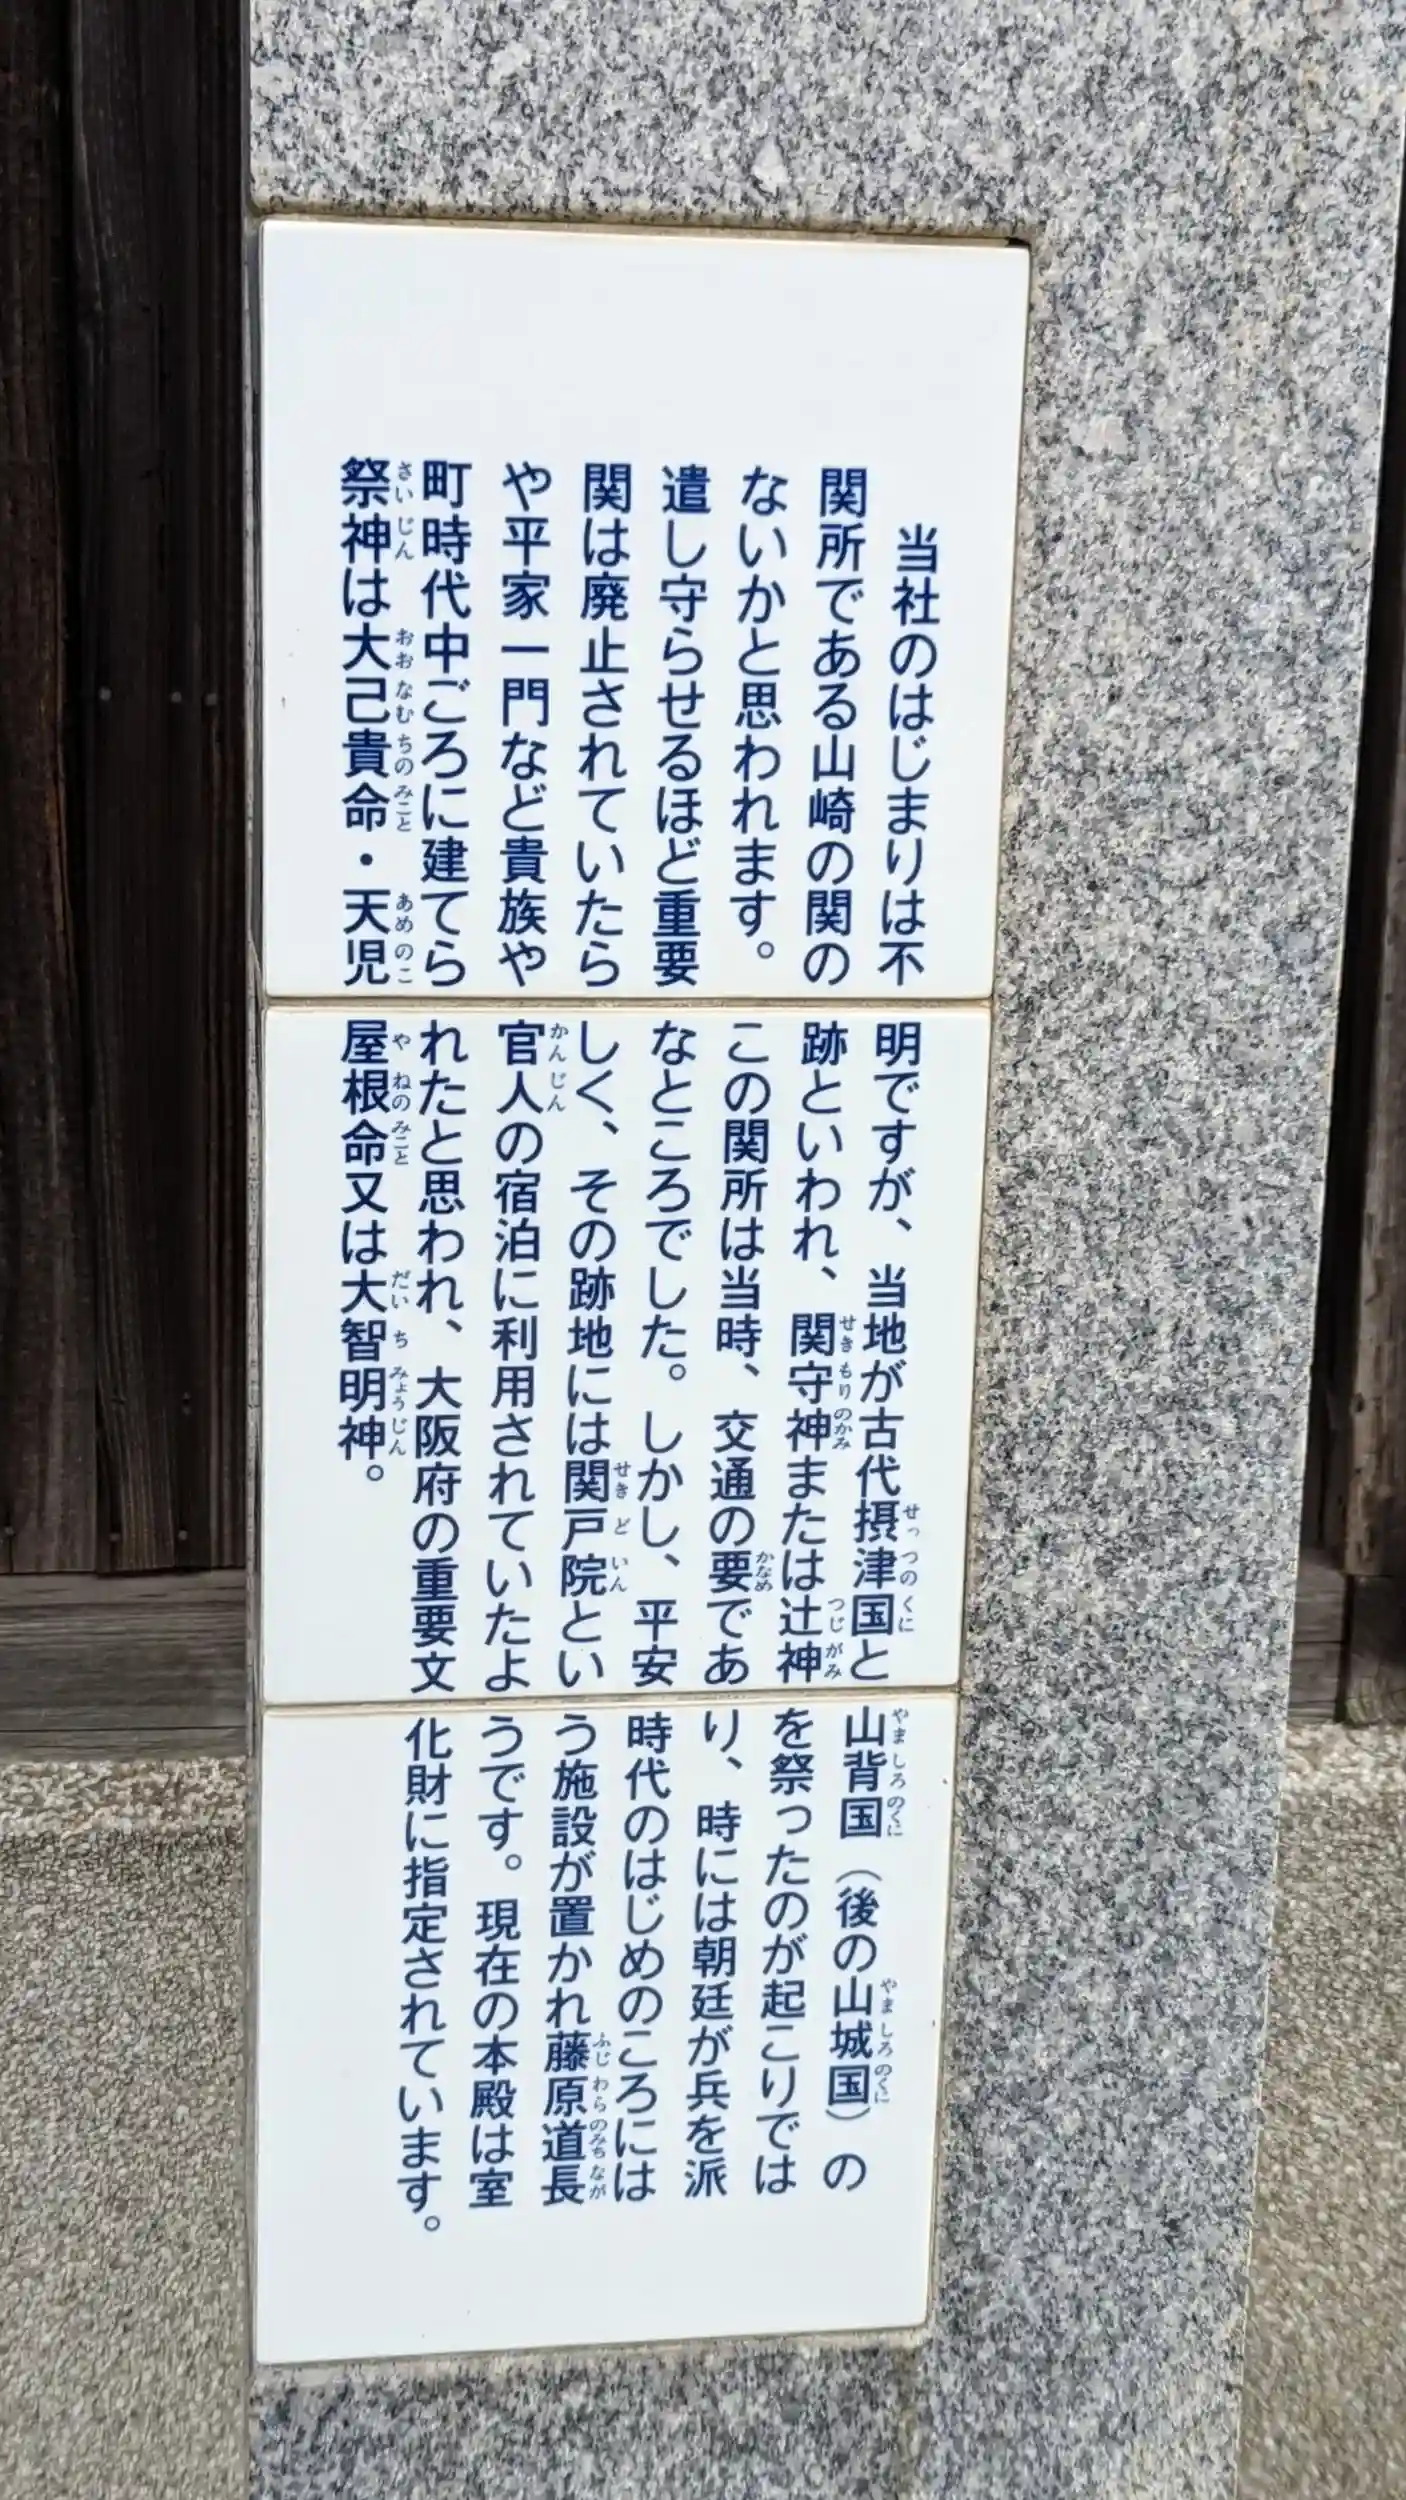 当社のはじまりは不明ですが、当地が古代摂津国と山背国（後の山城国）の
関所である山崎の関の跡といわれ、関守神または辻神を祭ったのが起こりでは
ないかと思われます。この関所は当時、交通の要であり、時には朝廷が兵を派
遣し守らせるほど重要なところでした。しかし、平安時代のはじめのころには
関は廃止されていたらしく、その跡地には関戸院という施設が置かれ藤原道長
や平家一門など貴族や官人の宿泊に利用されていたようです。現在の本殿は室
町時代中ごろに建てられたと思われ、大阪府の重要文化財に指定されています。
祭神は大己貴命・天児屋根命又は大智明神。